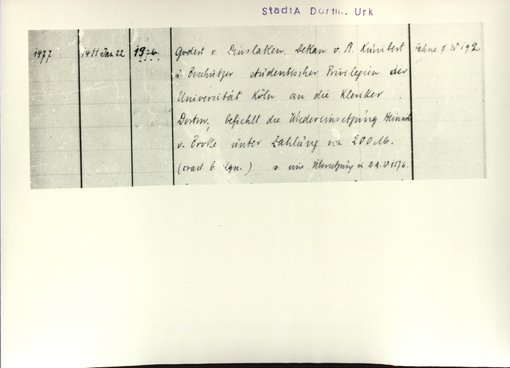 StadtA Dortm. Urk
1477 1411 Jan 22 1976 Godert v. Dinslaken, Dekan v. St. Kunibert Fahne
u. Beschützer studentischer Privilegien der
Universität Köln an die Kleriker
Dortm., befiehlt die Wiedereinsetzung Heinrich
v. Broke unter Zahlung von 200 M.
b. s. eine Übersetzung